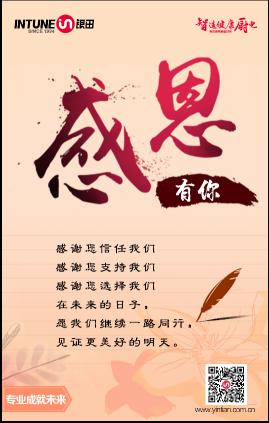 INTUNE 银田
SINCE 1994
智造健康厨电
感恩
有你
感谢您信任我们
感谢您支持我们
感谢您选择我们
在未来的日子，
愿我们继续一路同行，
见证更美好的明天。
专业成就未来
www.yintian.com.cn